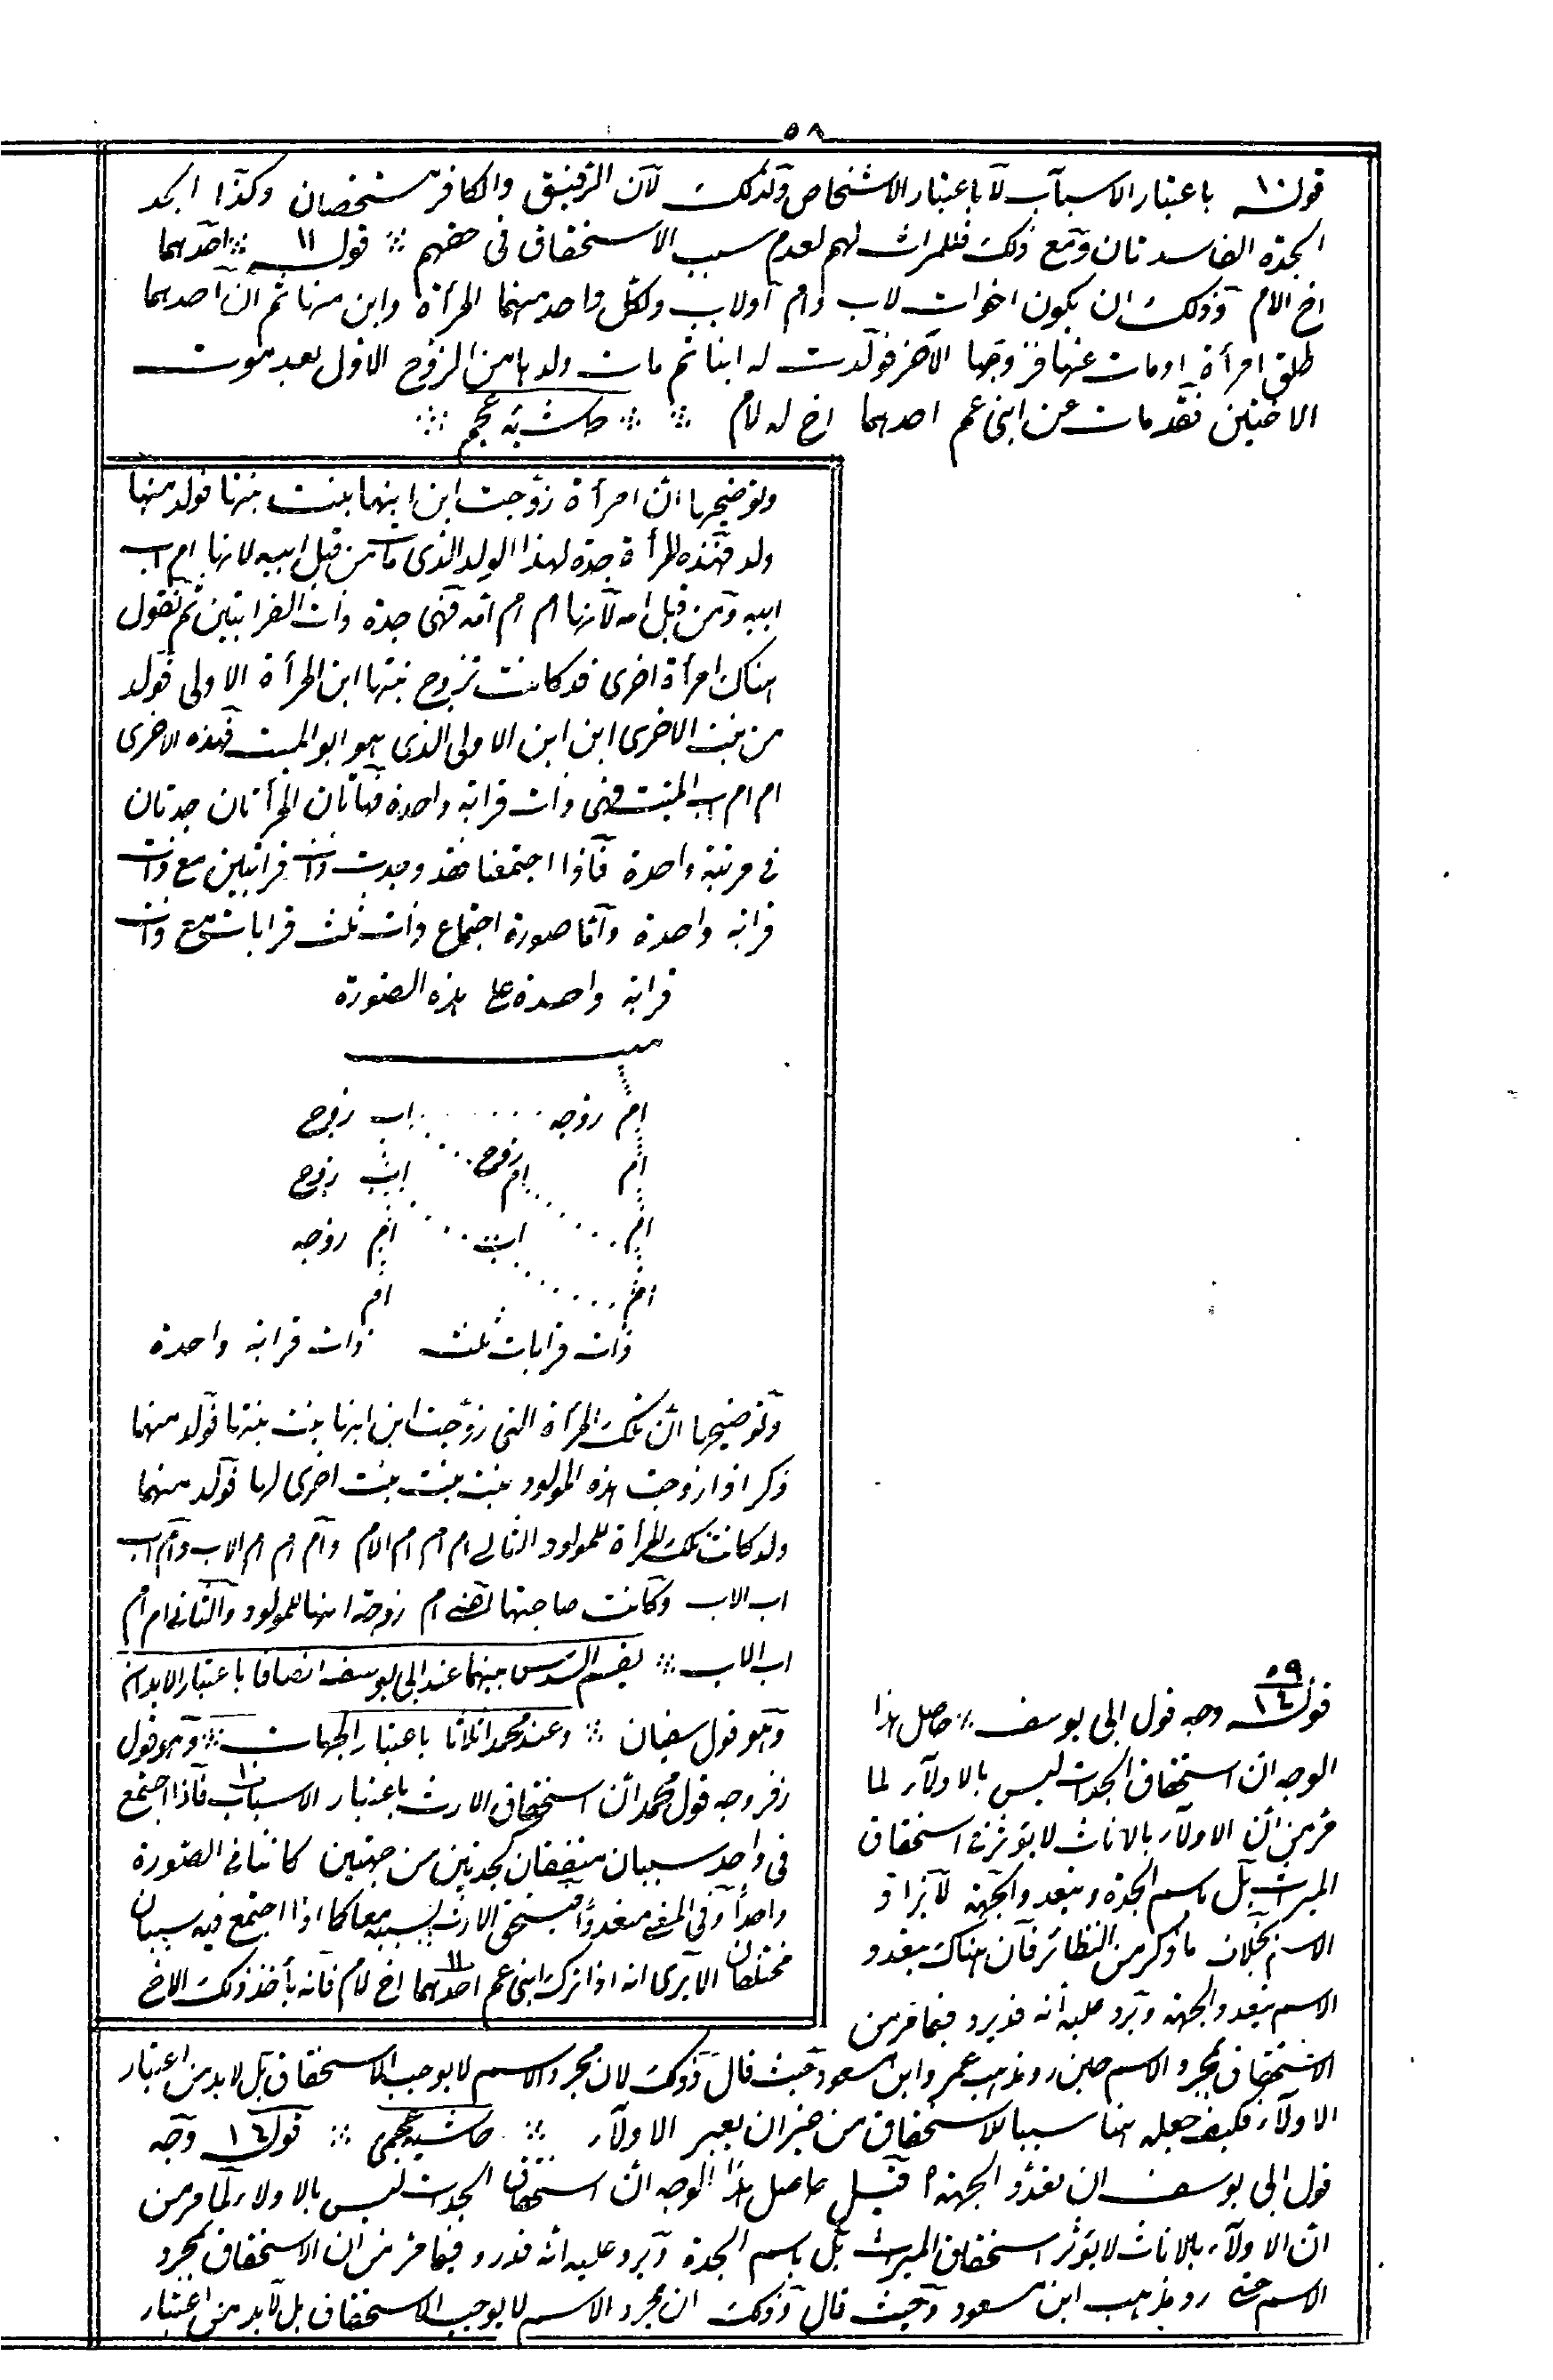 ٥٨
قوله ١٠ باعتبار الاسباب لا باعتبار الاشخاص وذلك لان الرقيق والكافر شخصان وكذا الجد
الجدة الفاسدتان ومع ذلك فلا ميراث لهم لعدم سبب الاستحقاق فى حقهم ∴ قوله ١١ ∴ احدهما
اخ لام وذلك ان يكون اخوات لاب وام اولاب ولكل واحد منهما امرأة وابن منها ثم ان احدهما
طلق امرأة اومات عنها فزوجها الآخر فولدت له ابنا ثم مات ولدها من الزوج الاول بعد موت
الاخنين فقد مات عن ابنى عم احدهما اخ له لام ∴ ∴ حاشيه عجم ∴
وتوضيحها ان امرأة زوجت ابن ابنها بنت بنتها فولد منها
ولد فهذه المرأة جدة لهذا الولد الذى مات من قبل ابيه لانها ام اب
ابيه ومن قبل امه لانها ام ام امه فهى جدة ذات القرابتين ثم نقول
هناك امرأة اخرى قد كانت تزوج بنتها ابن المرأة الاولى فولد
من بنت الاخرى ابن ابن الاولى الذى هو ابو الميت فهذه الاخرى
ام ام اب الميت فهى ذات قرابة واحدة فهاتان المرأتان جدتان
فى مرتبة واحدة فاذا اجتمعنا فقد وجدت ذات قرابتين مع ذات
قرابة واحدة واما صورة اجتماع ذات ثلث قرابات مع ذات
قرابة واحدة على هذه الصورة
ميت
ام زوجه اب زوج
ام ام زوج اب زوج
ام اب ام زوجه
ام ام
ذات قرابات ثلث ذات قرابة واحدة
وتوضيحها ان تلك المرأة التى زوجت ابن ابنها بنت بنتها فولد منهما
ذكر اذا زوجت هذه المولود بنت بنت بنت اخرى لها فولد منهما
ولد كانت تلك المرأة للمولود الثانى ام ام ام الام وام ام ام الاب وام اب
اب الاب وكانت صاحبتها تعنى ام زوجة ابنها للمولود والثانى ام ام
اب الاب ∴ يقسم السدس بينهما عند ابى يوسف انصافا باعتبار الابدان
وهو قول سفيان ∴ وعند محمد اثلاثا باعتبار الجهات ∴ وهو قول
زفر وجه قول محمد ان استحقاق الارث باعتبار الاسباب ١٠ فاذا اجتمع
فى واحد سببان متفقان كجدتين من جهتين كانتا فى الصورة
واحدا وفى المعنى متعددا فيستحق الارث بسببيه معا كما اذا اجتمع فيه سببان
مختلفان الا يرى انه اذا ترك ابنى عم احدهما ١١ اخ لام فانه يأخذ ذلك الاخ
٥٩
قوله ١٢ وجه قول ابى يوسف ∴ حاصل هذا
الوجه ان استحقاق الجدات ليس بالاولاء لما
مر من ان الاولاء بالاناث لا يؤثر فى استحقاق
الميراث بل باسم الجدة وبتعدد الجهة لا يزاد
الاسم بخلاف ما ذكر من النظائر فان هناك تعدد
الاسم بتعدد الجهة ويرد عليه انه قد يرد فيما مر من
الاستحقاق بمجرد الاسم حين رد مذهب عمر وابن مسعود حيث قال وذلك لان مجرد الاسم لا يوجب الاستحقاق بل لابد من اعتبار
الاولاء فكيف جعله هنا سببا للاستحقاق من خيران يعبر الاولاء ∴ حاشيه عجمى ∴ قوله ١٢ وجه
قول ابى يوسف ان تعدد الجهة ا قيل حاصل هذا الوجه ان استحقاق الجدات ليس بالاولاء لما مر من
ان الاولاء بالاناث لا يؤثر استحقاق الميراث بل باسم الجدة ويرد عليه انه قد رد فيما مر من ان الاستحقاق بمجرد
الاسم حتى رد مذهب ابن مسعود وحيث قال وذلك ان مجرد الاسم لا يوجب الاستحقاق بل لابد من اعتبار